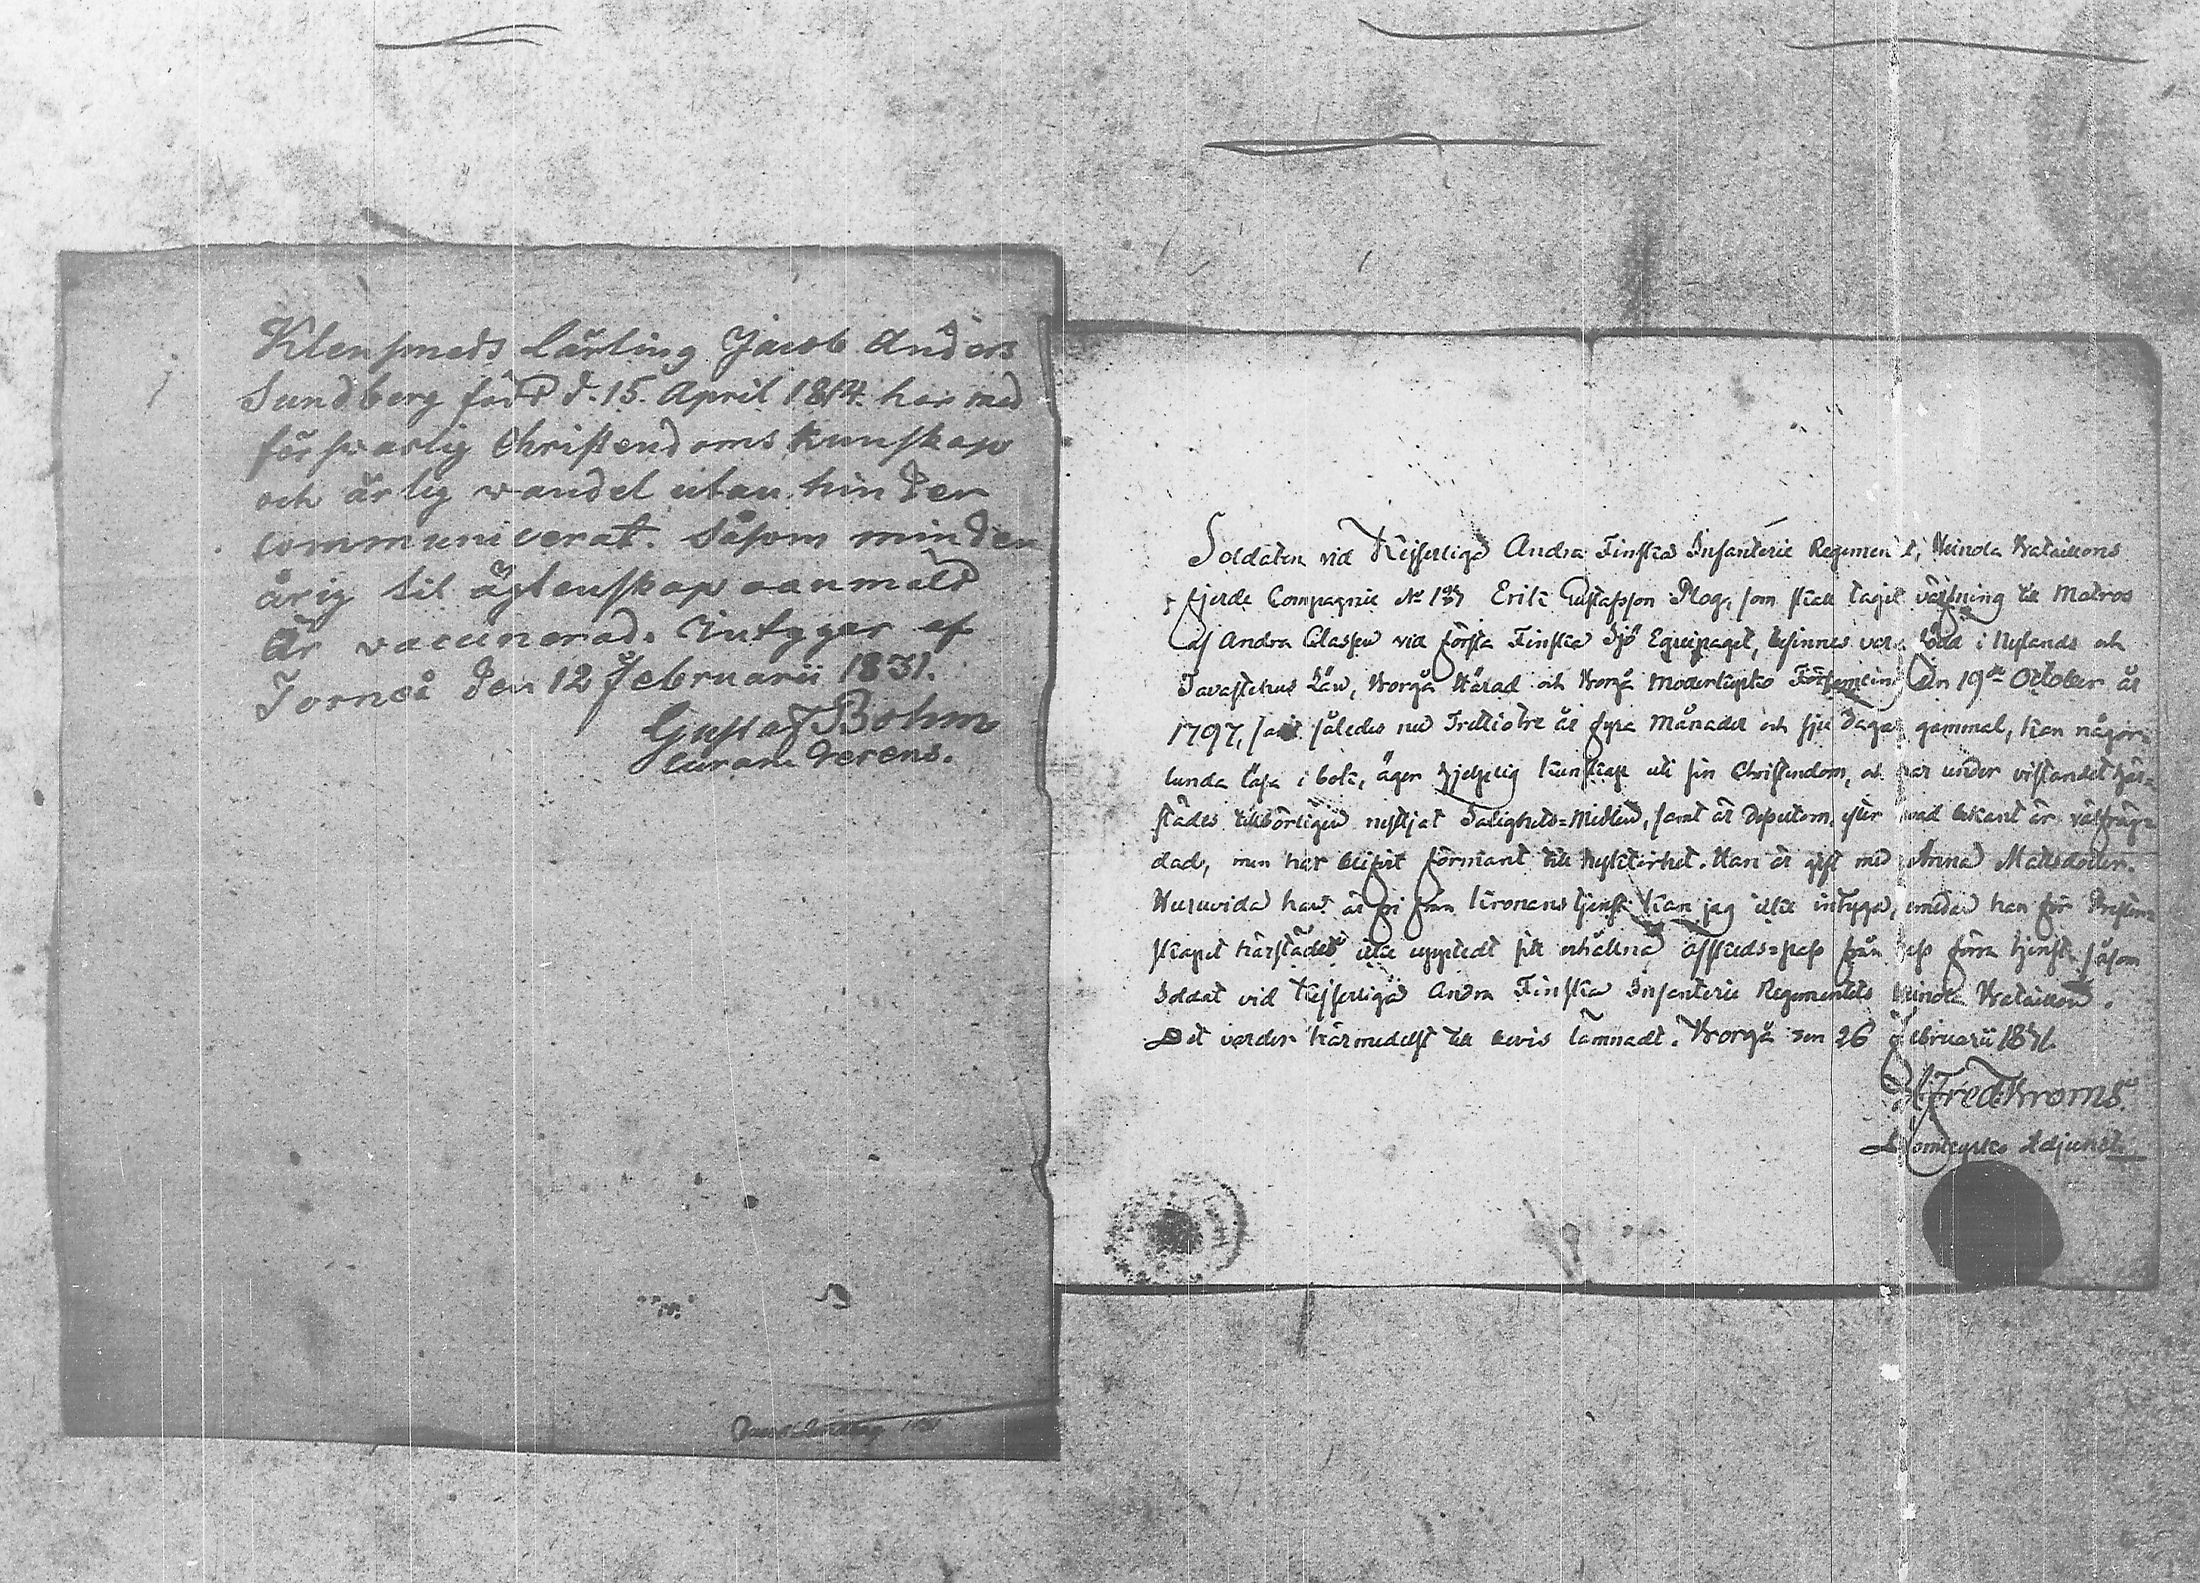 Klensmeds Lärling Jacob Anders
Sundberg född d. 15. April 1814. har med
förswarlig Christendoms kunskap
och ärlig wandel utan hinder
communicerat. Såsom minder
årig til ägtenskap oanmäld
Är vaccinerad. Intygger af
Torneå den 12 Februarii 1831.
Gustaf Bohm
Curam Gerens.
Soldaten vid Kejserliga Andra Finska Infanterie Regementet, Heinola Bataillons
fjerde Compagnie No Erik Gustafsson Plog, som skall tagit värfning till Matros
af Andra Classen vid Första Finska Sjö Equipaget, befinnes vara född i Nylands och
Tavastehus Län, Borgå Härad och Borgå Moderkyrko Församling den 19de October år
1797, samt således nu Trettiotre år fyra Månader och sju dagar gammal, kan någor=
lunda läsa i bok, äger hjelplig kunskap uti sin Christendom, och har under vistandet här=
städes tillbörligen nyttjat Salighets=Medlen, samt är dessutom, efter hvad bekant är välfräg=
dad, men har blifvit förmant till nykterhet. Han är gift med Anna Mattsdotter.
Huruvida han är fri från Kronans tjenst kan jag icke intyga, emedan han för Prester=
skapet härstädes icke upptedt sitt erhållna Afskeds=pass från dess förra tjenst såsom
Soldat vid Kejserliga Andra Finska Infanterie Regementets Heinola Bataillon.
Det varder härmedelst till bevis lämnadt. Borgå den 26 Februarii 1831.
Fred. Broms.
Domkyrko Adjunct.
1831